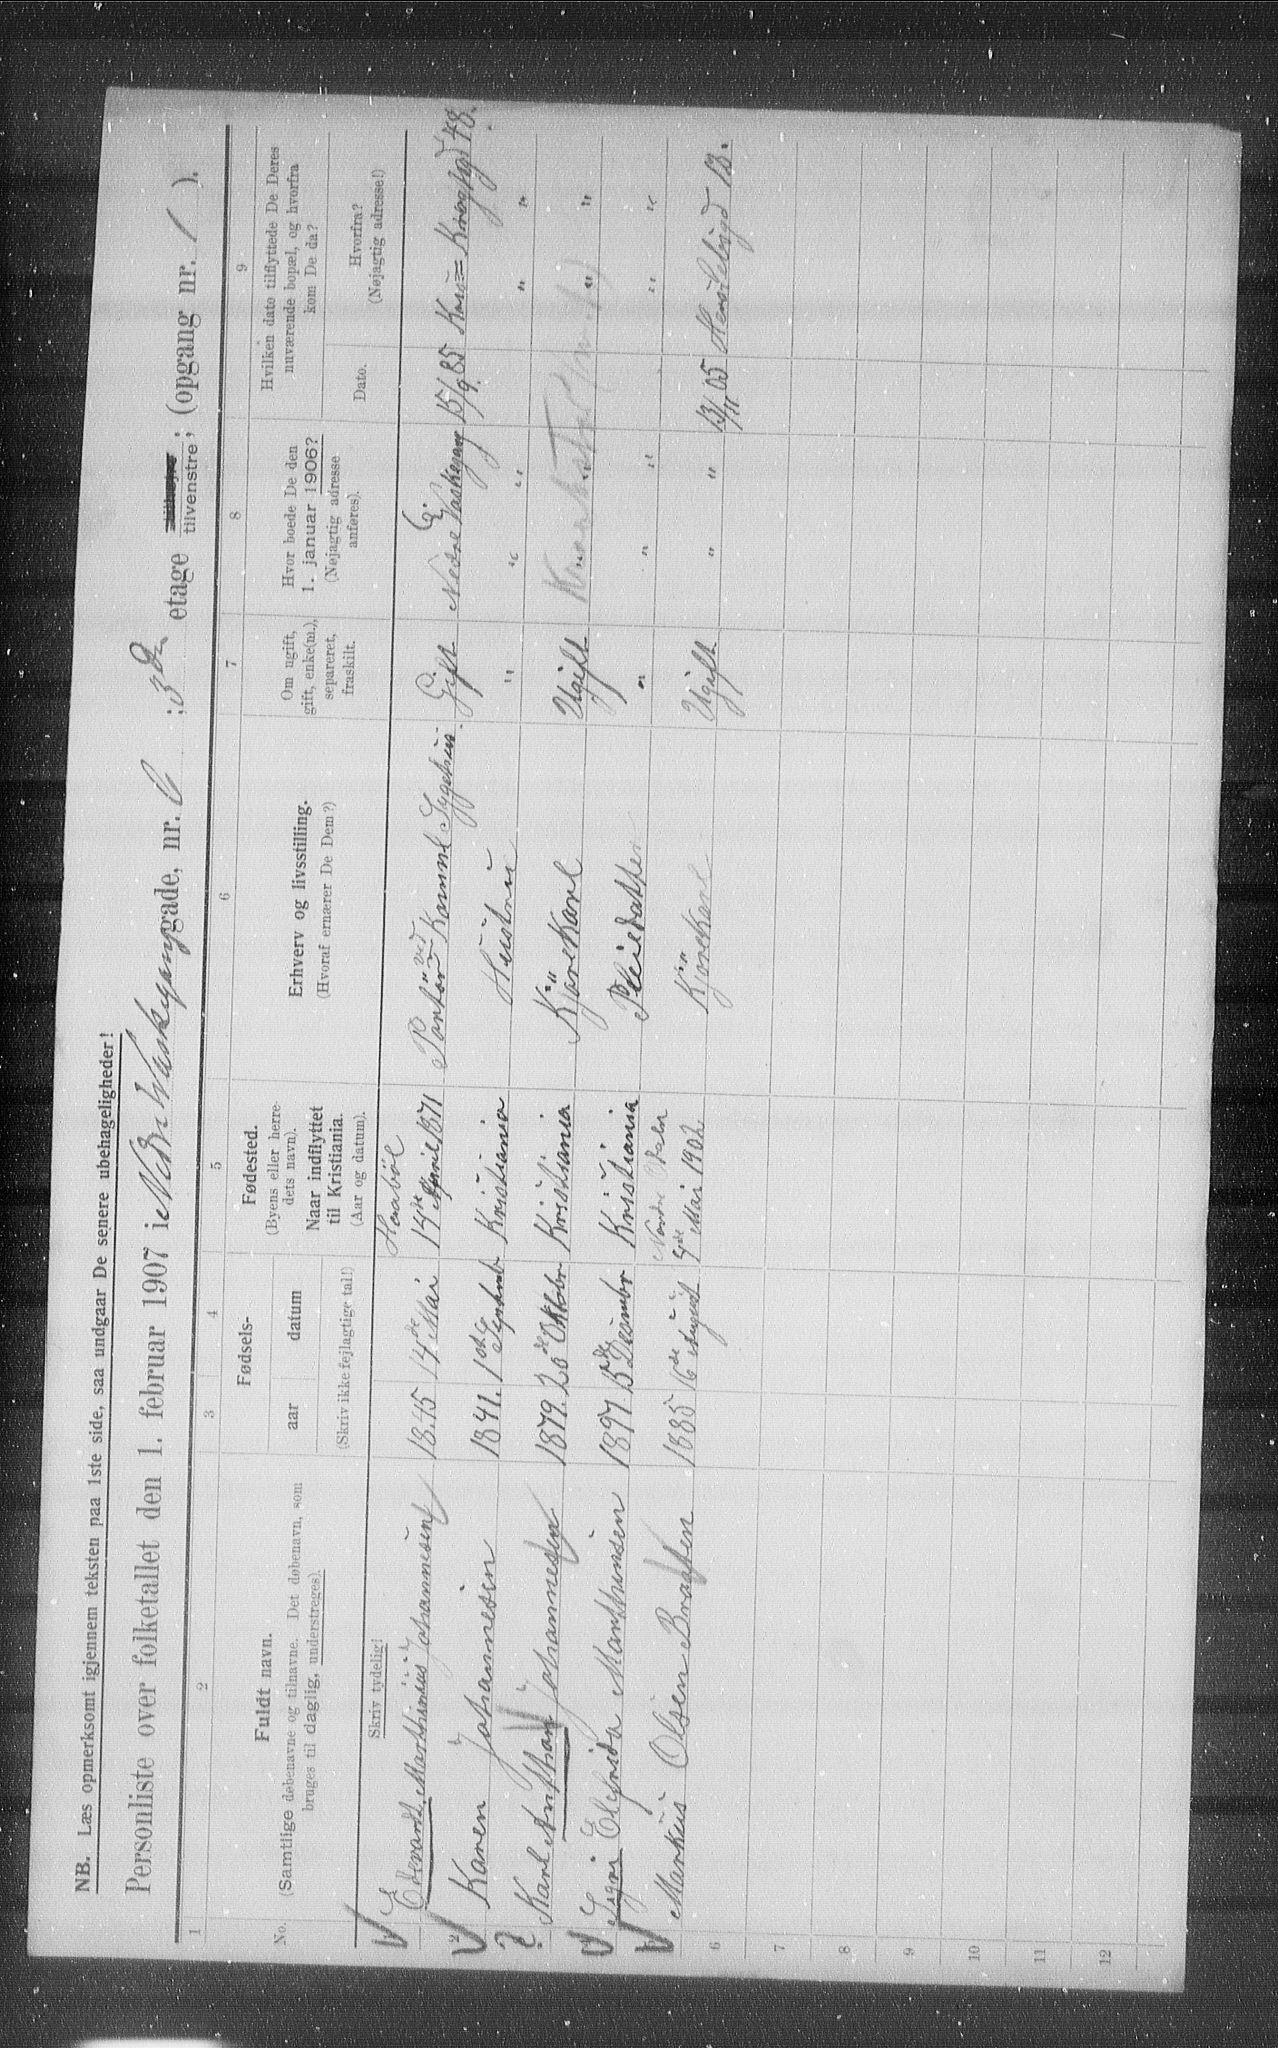 NB. Læs opmerksomt igjennem teksten paa 1ste side, saa undgaar De senere ubehageligheder!
Personliste over folketallet den 1. februar 1907 i Nedre Vaskegang gade, nr. 6 ; 3die etage tilvenstre; (opgang nr. 1 ).
1 2 3 4 5 6 7 8 9
No.
Fuldt navn.
(Samtlige døbenavne og tilnavne. Det døbenavn, som
bruges til daglig, understreges).
Skriv tydelig!
Fødsels-
aar datum
(Skriv ikke fejlagtige tal!)
Fødested.
(Byens eller herre-
dets navn).
Naar indflyttet
til Kristiania.
(Aar og datum).
Erhverv og livsstilling.
(Hvoraf ernærer De Dem?)
Om ugift,
gift, enke(m.),
separeret,
fraskilt.
Hvor boede De den
1. januar 1906?
(Nøjagtig adresse
anføres).
Hvilken dato tilflyttede De Deres
nuværende bopæl, og hvorfra
kom De da?
Dato.
Hvorfra?
(Nøjagtig adresse!)
Edevardt Marthinius Johannesen 1845 14de Mai Haabøl 14de April 1871 Portør ved Komml Sygehus. Gift Nedre Vaskegang 6 15/9 85 48.
2 Karen Johannesen 1841. 1ste Septembr Kristiania Hustru " " " " "
Karl Anthon Johannesen 1879. 20de Oktobr Kristiania Kjørekarl Ugift " " "
Signe Elfrida Marthinsen 1897 15de Desembr Kristiania Pleiedatter " " " " "
Markus Olsen Braaten 1885 16de August Nordre Odalen Mai 1902 Kjørekarl Ugift " " 13/11 05 13.
6
7
8
9
10
11
12